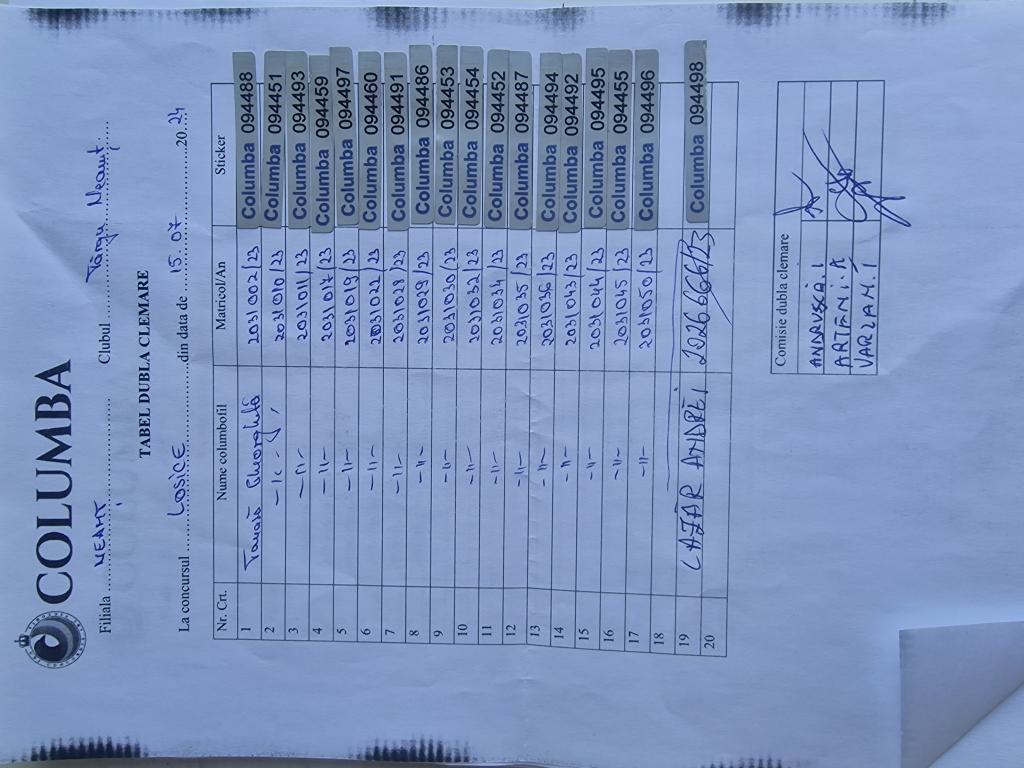 COLUMBA
Filiala ........NEAMȚ.................... Clubul........Târgu Neamț........
TABEL DUBLA CLEMARE
La concursul ........Losice....................din data de ....15.07................20.24...
Nr. Crt. Nume columbofil Matricol/An Sticker
1 Gheorghiță 2031002/23 Columba 094488
2 -11- 2031010/23 Columba 094451
3 -11- 2031011/23 Columba 094493
4 -11- 2031017/23 Columba 094459
5 -11- 2031019/23 Columba 094497
6 -11- 2031022/23 Columba 094460
7 -11- 2031028/23 Columba 094491
8 -11- 2031029/23 Columba 094486
9 -11- 2031030/23 Columba 094453
10 -11- 2031032/23 Columba 094454
11 -11- 2031034/23 Columba 094452
12 -11- 2031035/23 Columba 094487
13 -11- 2031036/23 Columba 094494
14 -11- 2031043/23 Columba 094492
15 -11- 2031044/23 Columba 094495
16 -11- 2031045/23 Columba 094455
17 -11- 2031050/23 Columba 094496
18
19 LAZĂR ANDREI 2026666/23 Columba 094498
20
Comisie dubla clemare
ANDRUSCĂ.I
ARTENI.A
VARZAN.I